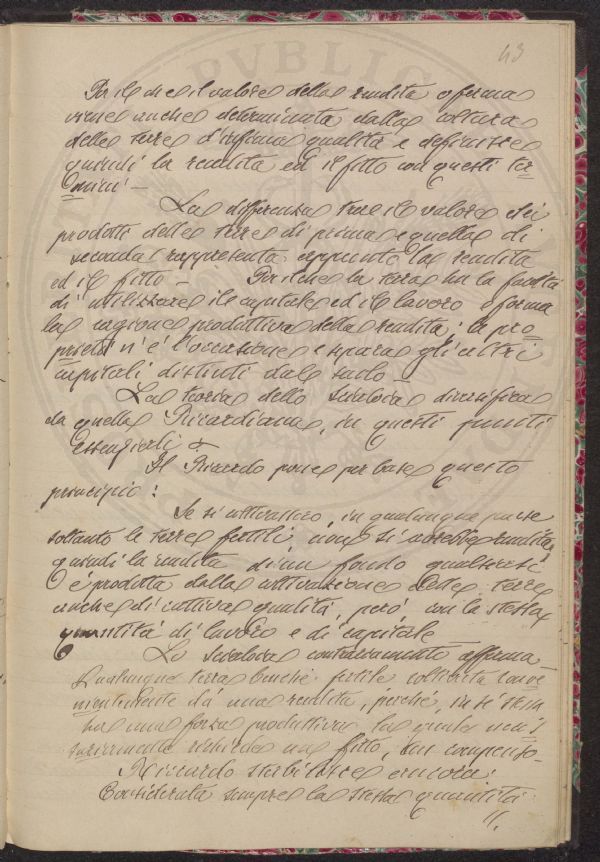 43
Per il che il valore della rendita o ferma
viene anche determinata dalla coltura
delle terre d'infima qualità e definisce
quindi la rendita ed il fitto con questi ter
mini -
La differenza tra il valore dei
prodotti delle terre di prima e quella di
seconda rappresenta appunto la rendita
ed il fitto - Perchè la terra ha la facoltà
di utilizzare il capitale ed il lavoro forma
la ragione produttiva della rendita; la pro
prietà n'è l'occasione e separa gli altri
capitali distinti dal suolo -
La teoria dello Scialoia diversifica
da quella Ricardiana, in questi punti
essenziali
Il Ricardo pone per base questo
principio:
Se si coltivassero, in qualunque paese
soltanto le terre fertili non si avrebbe rendita
quindi la rendita di un fondo qualsiasi
è prodotta dalla coltivazione delle terre
anche di cattiva qualità, però con la stessa
quantità di lavoro e di capitale
Lo Scialoia contrariamente afferma -
Qualunque terra benchè fertile coltivata conve
nientemente dà una rendita, perchè, in sè stessa
ha una forza produttiva la quale neces
sariamente richiede un fitto, un compenso -
Riccardo stabilisce ancora:
Considerata sempre la stessa quantità